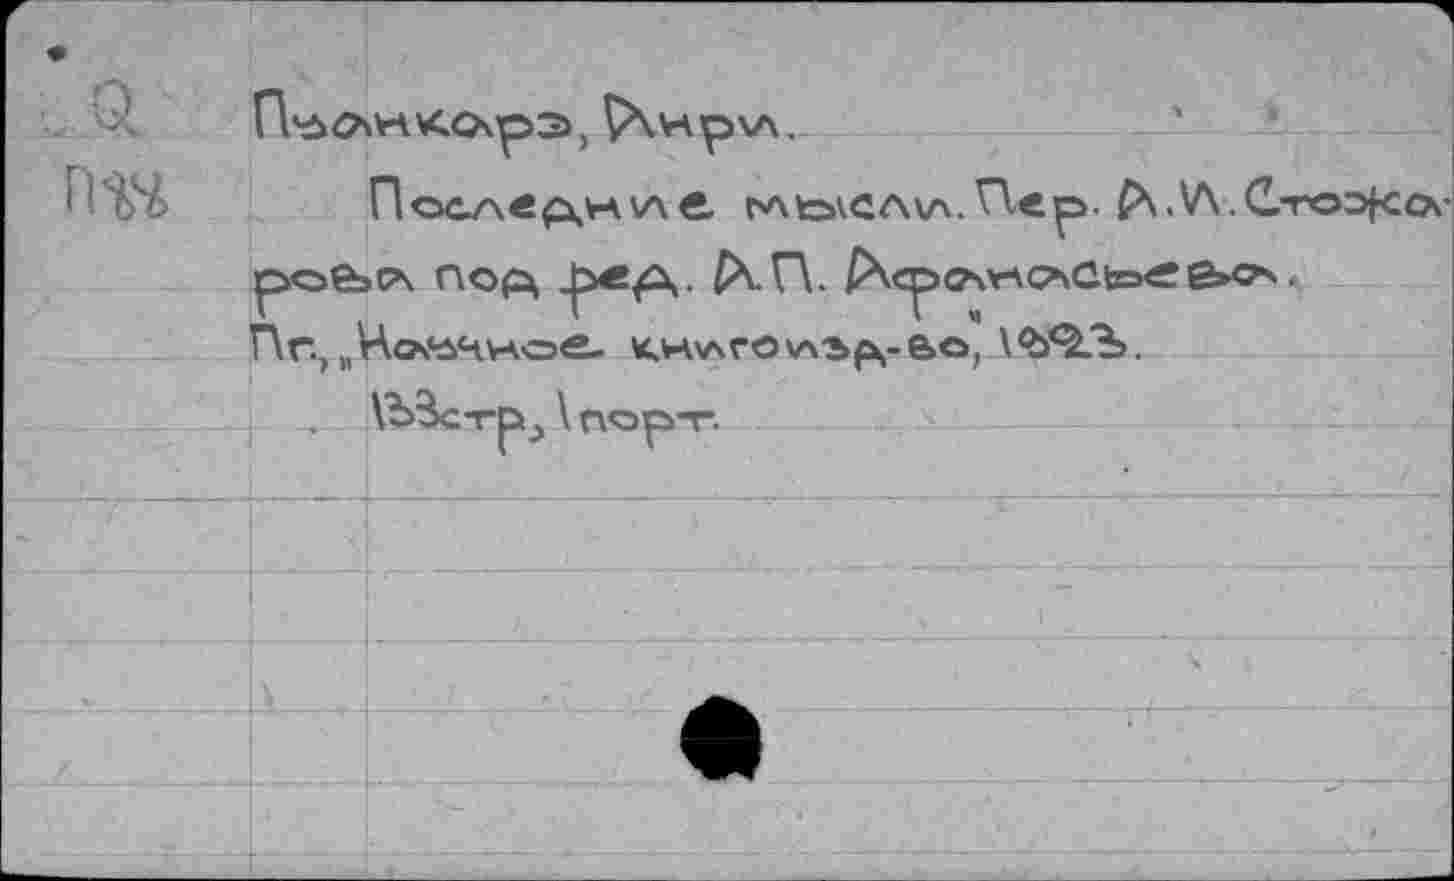 Q
Пуанкарэ, Анри.
Последние мысли. Пер. А.И. Стожа-
рова под ред. А.П. Афанасьева.
Пг., „Научное книгоизд-во", 1923.
133 стр., 1 порт.